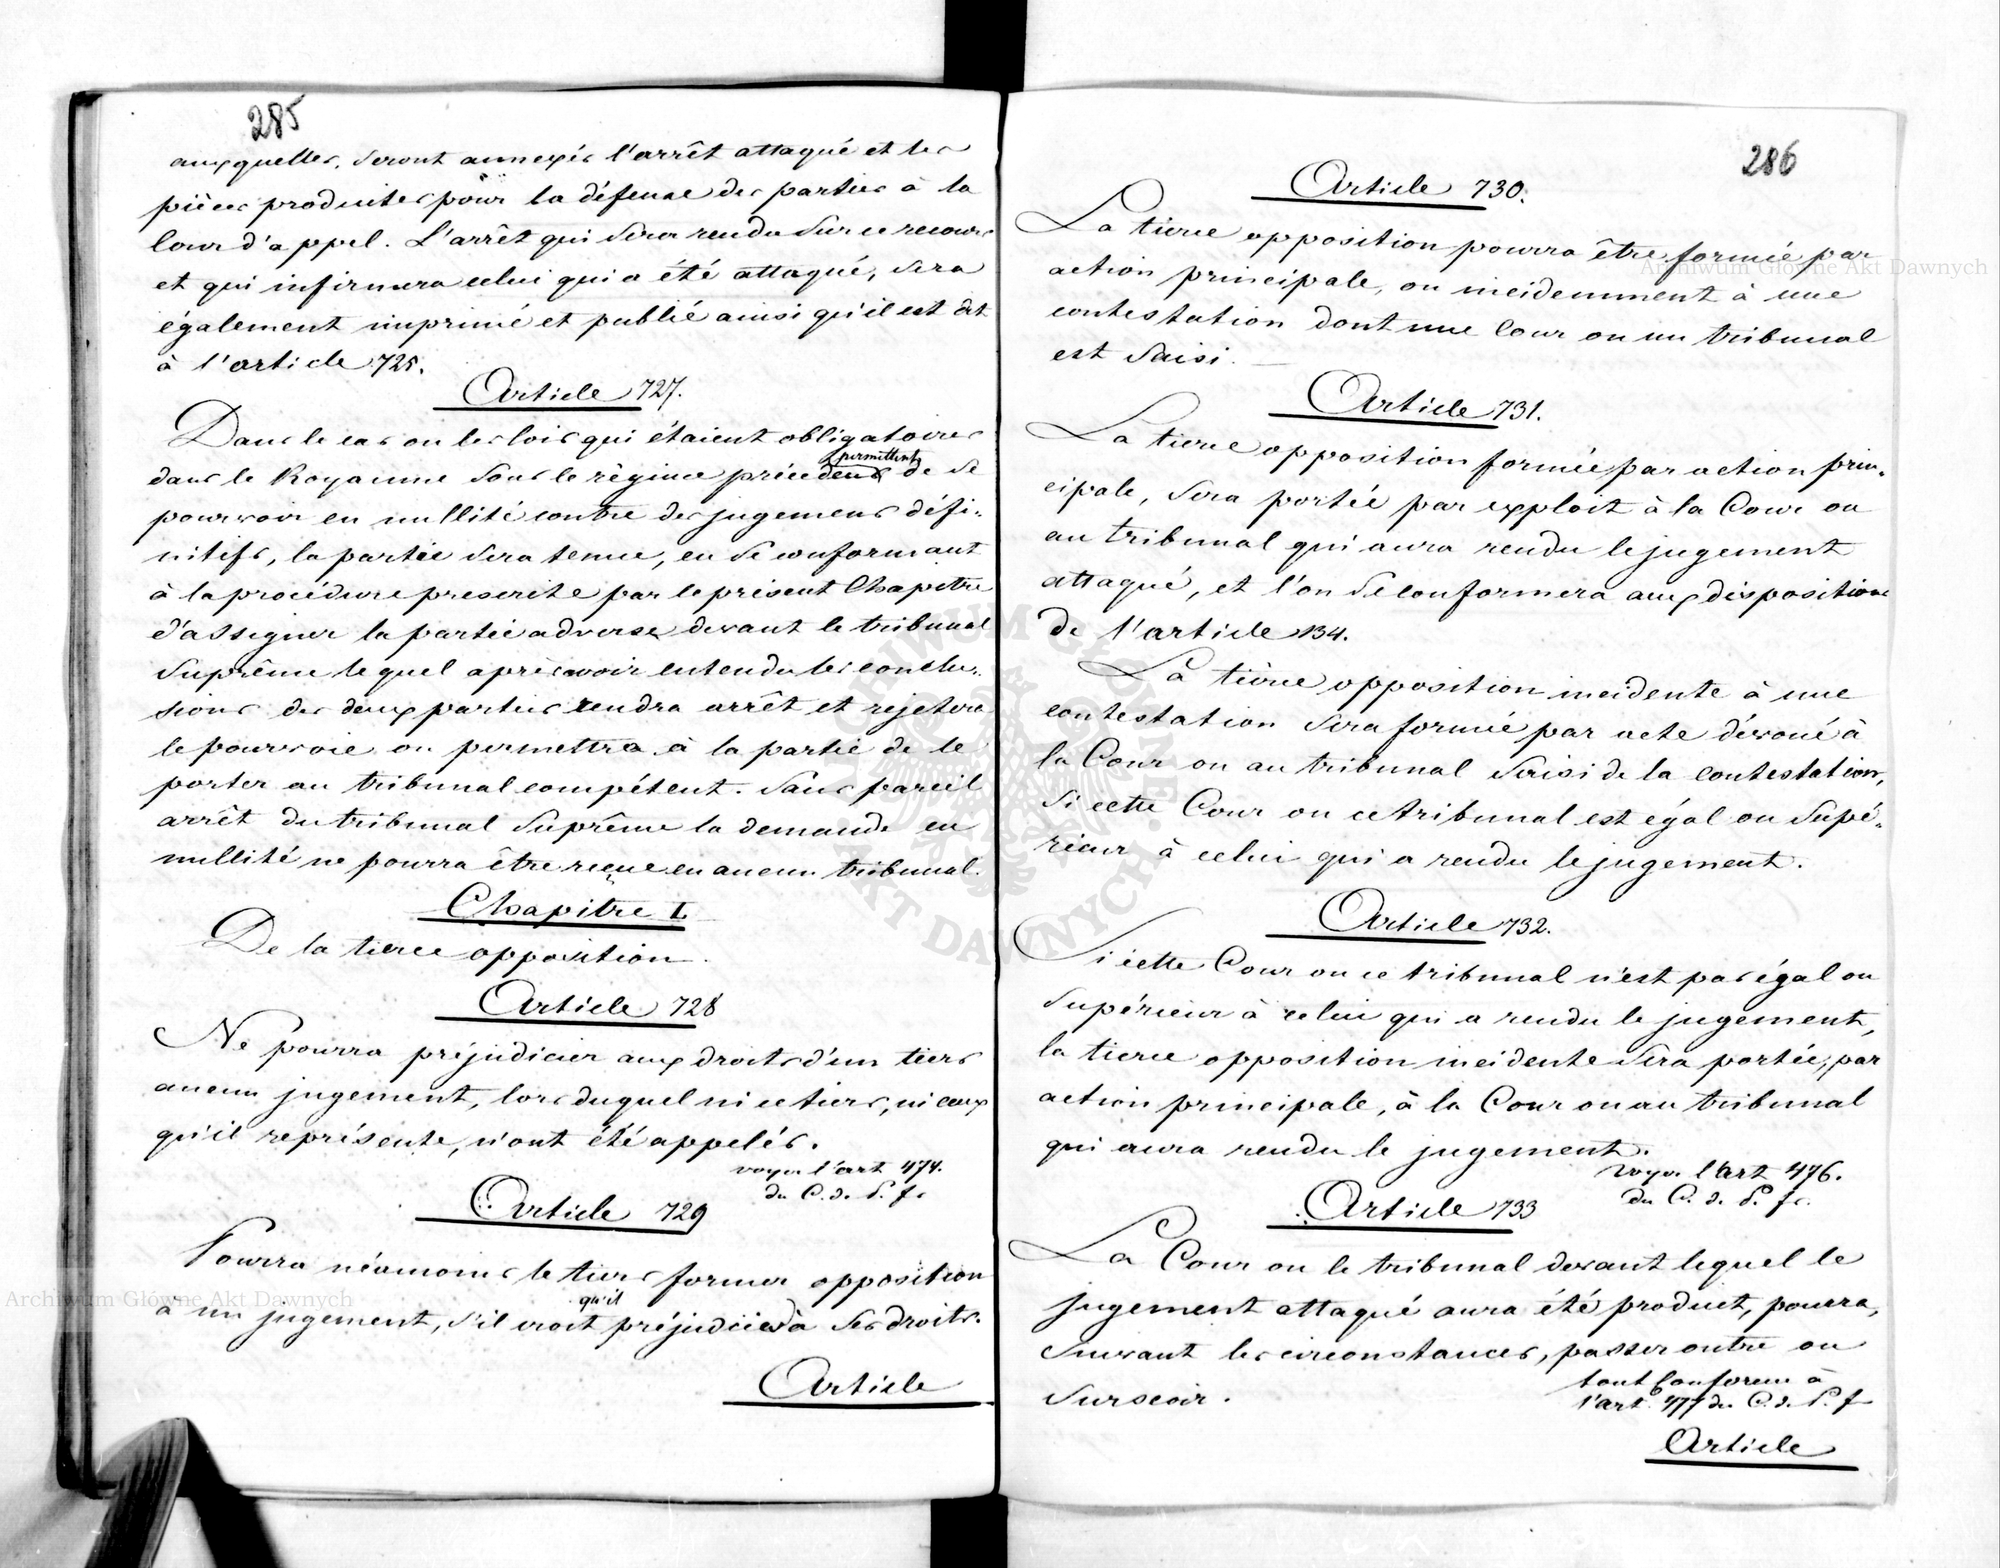 285
auxquelles, seront annexés l'arrêt attaqué et les
pièces produites pour la défense des parties à la
Cour d'appel. L'arrêt qui sera rendu sur ce recours
et qui infirmera celui qui a été attaqué, sera
également imprimé et publié ainsi qu'il est dit
à l'article 725.
Article 727.
Dans le cas ou les lois qui étaient obligatoires
permittent
dans le Royaume sous le régime précedent de se
pourvoir en nullité contre des jugemens défi-
nitifs, la partie sera tenue, en se conformant
à la procédure prescrite par le présent Chapitre
d'assigner la partie adverse devant le tribunal
Suprême lequel après avoir entendu les conclu-
sions des deux parties rendra arrêt et rejetera
le pourvoie ou permettra à la partie de le
porter au tribunal compétent. Sans pareil
arrêt du tribunal Suprême la demande en
nullité ne pourra être reçue en aucun tribunal.
Chapitre I.
De la tierce opposition.
Article 728
Ne pourra préjudicier aux droits d'un tiers
aucun jugement, lors duquel ni ce tiers, ni ceux
qu'il représente, n'ont été appelés.
voyez l'art 474.
du C. d. P. fr
Article 729
Pourra néamoins le tiers former opposition
qu'il
à un jugement, s'il croit préjudicie à ses droits.
Article
286
Article 730.
La tierce opposition pourra être formée par
action principale, ou incidemment à une
contestation dont une Cour ou un tribunal
est saisi.
Article 731.
La tierce opposition formée par action prin-
cipale, sera portée par exploit à la Cour ou
au tribunal qui aura rendu le jugement
attaqué, et l'on se conformera aux dispositions
de l'article 134.
La tièrce opposition incidente à une
contestation sera formée par acte dévoué à
la Cour ou au tribunal saisi de la contestation,
si cette Cour ou ce tribunal est égal ou supé-
rieur à celui qui a rendu le jugement.
Article 732.
Si cette Cour ou ce tribunal n'est pas égal ou
supérieur à celui qui a rendu le jugement,
la tierce opposition incidente sera portée, par
action principale, à la Cour ou au tribunal
qui aura rendu le jugement.
voyez l'art 476.
du C. d. P. fr.
Article 733
La Cour ou le tribunal devant lequel le
jugement attaqué aura été produit, pourra,
suivant les circonstances, passer outre ou
surseoir.
tout conforme à
l'art. 477 du C. d. P. f
Article
Archiwum Główne Akt Dawnych
Archiwum Główne Akt Dawnych
ARCHIWUM GŁÓWNE AKT DAWNYCH